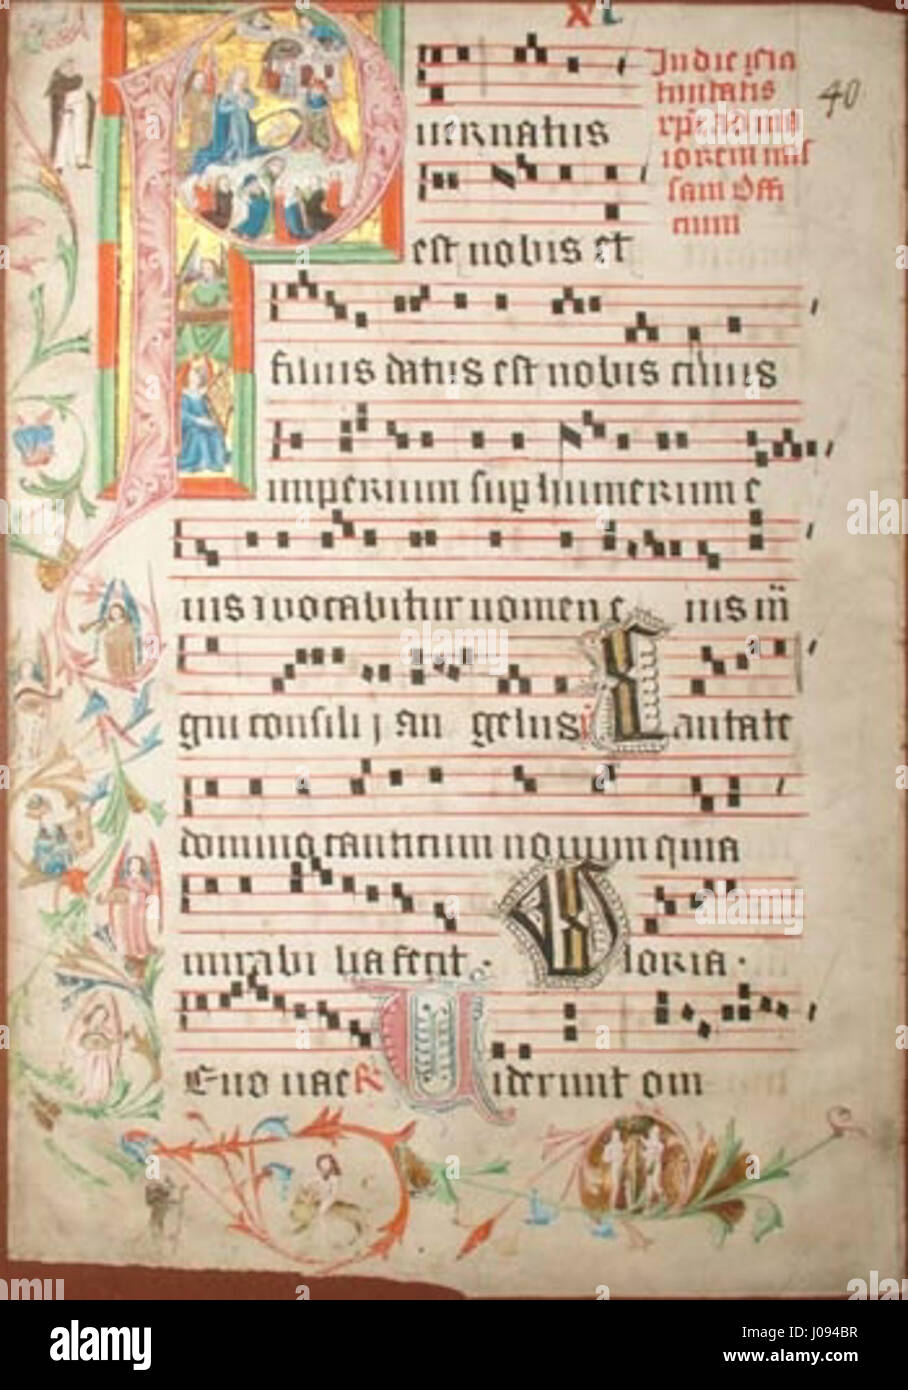 XL
In die ista
tiuitatis
xp̄i ad mai
iorem mis
sam Offi
cium
40
Puer natus
est nobis et
filius datus est nobis cuius
imperium sup humerum e
ius i vocabitur nomen e ius m̄
gni consilij an gelus ii Cantate
domino canticum nouum quia
mirabi lia fecit · Gloria ·
Euouae R Uiderunt om
alamy
Image ID: J094BR
www.alamy.com